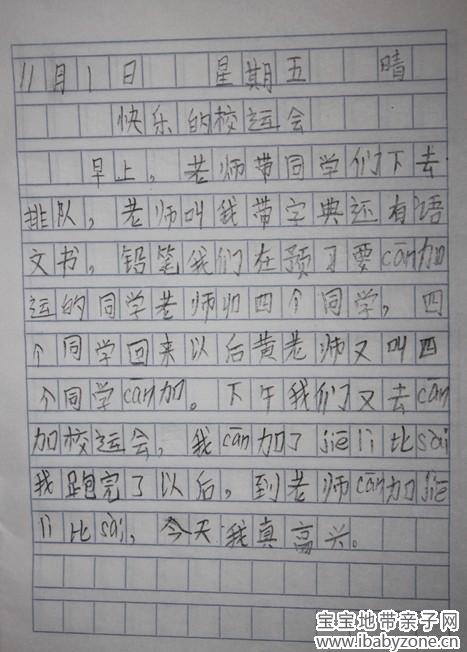 11月1日 星期五 晴
快乐的校运会
早上，老师带同学们下去
排队，老师叫我带字典还有语
文书，铅笔我们在预习要cān加
运的同学老师叫四个同学，四
个同学回来以后黄老师又叫四
个同学cān加。下午我们又去cān
加校运会，我cān加了jiē lì比sài
我跑完了以后，到老师cān加jiē
lì比sài，今天我真高兴。
宝宝地带亲子网
www.ibabyzone.cn